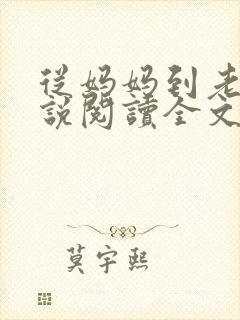 從媽媽到老
說閱讀全文
莫宇熙